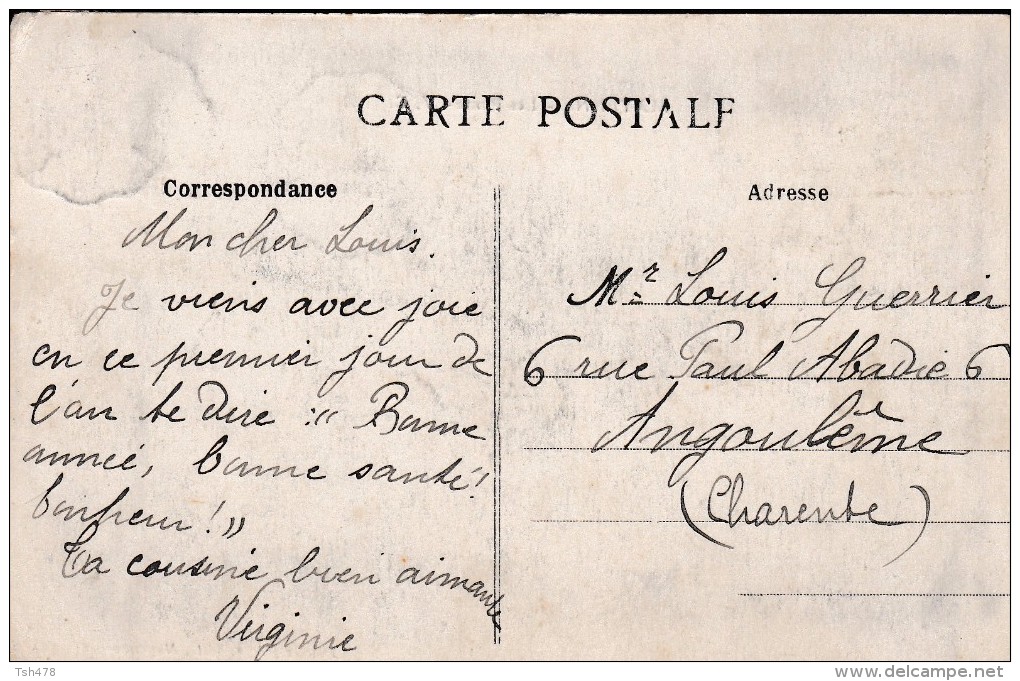 CARTE POSTALE
Correspondance
Mon cher Louis.
Je viens avec joie
en ce premier jour de
l'an te dire : "Bonne
année, bonne santé!
bonheur!"
Ta cousine bien aimante
Virginie
Adresse
Mr Louis Guerrier
6 rue Paul Abadie 6
Angoulême
(Charente)
Tsh478
www.delcampe.net